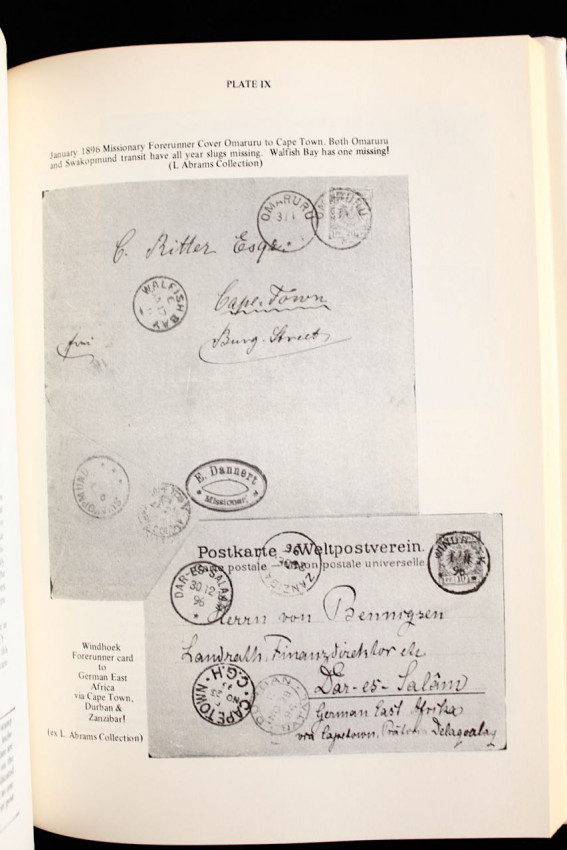 PLATE IX
January 1896 Missionary Forerunner Cover Omaruru to Cape Town. Both Omaruru
and Swakopmund transit have all year slugs missing. Walfish Bay has one missing!
(L Abrams Collection)
OMARURU
C. Ritter Esqr.
WALFISH BAY
Cape-Town
Burg-Street
SWAKOPMUND
E. Dannert
Missionar
Postkarte – Weltpostverein.
postale universelle
DAR-ES-SALAAM
30 12
96
ZANZIBAR
WINDHOEK
Herrn von Bennigsen
Landrath, Finanzdirektor etc
Dar-es-Salâm
German East Afrika
via Capetown, Delagoabay
CAPETOWN · C.G.H.
NO
Windhoek
Forerunner card
to
German East
Africa
via Cape Town,
Durban &
Zanzibar!
(ex L. Abrams Collection)